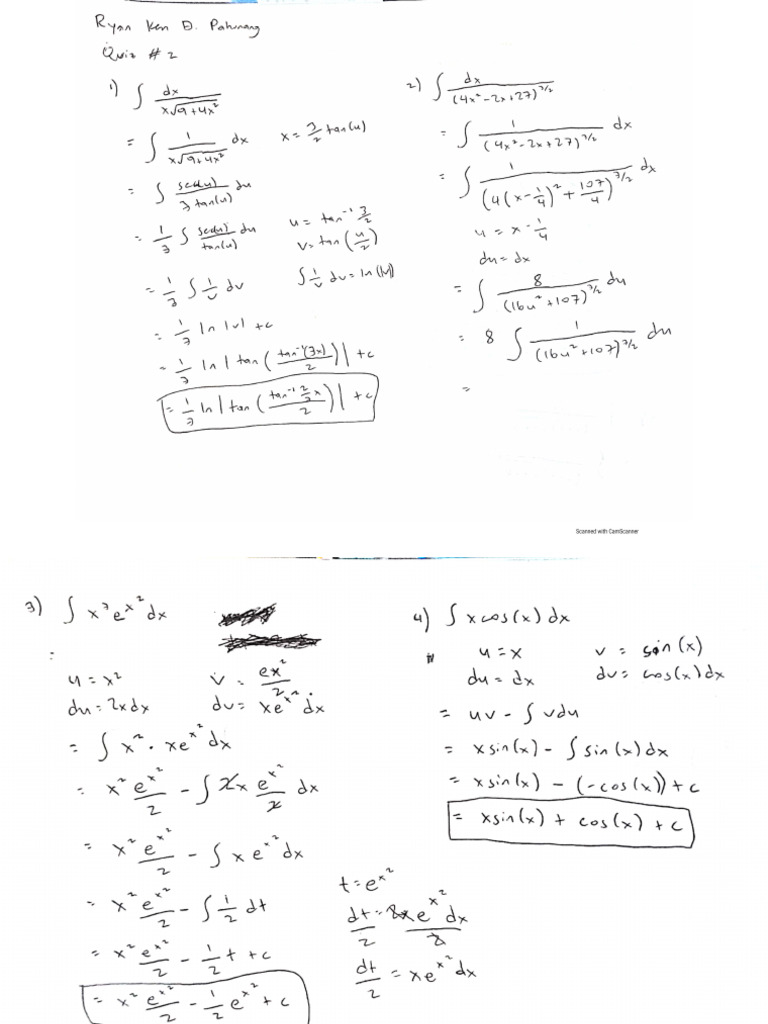 Ryan Ken D. Patunang
Quiz # 2
1) ∫ dx/(x√(9+4x²))
= ∫ 1/(x√(9+4x²)) dx    x = 3/2 tan(u)
= ∫ sec(u)/(3tan(u)) du
= 1/3 ∫ sec(u)/tan(u) du    u = tan⁻¹ 3/2
v = tan(u/2)
= 1/3 ∫ 1/v dv    ∫ 1/v dv = ln(|v|)
= 1/3 ln |v| + c
= 1/3 ln | tan ( tan⁻¹(3x)/2 ) | + c
= 1/3 ln | tan ( tan⁻¹ 2/3 x / 2 ) | + c
2) ∫ dx/(4x²-2x+27)^(3/2)
= ∫ 1/(4x²-2x+27)^(3/2) dx
= ∫ 1/(4(x-1/4)² + 107/4)^(3/2) dx
u = x - 1/4
du = dx
= ∫ 8/(16u²+107)^(3/2) du
= 8 ∫ 1/(16u²+107)^(3/2) du
=
Scanned with CamScanner
3) ∫ x³e^(x²) dx
:
u = x²    v = e^(x²)/2
du = 2xdx    dv = xe^(x²) dx
= ∫ x² · xe^(x²) dx
= x² e^(x²)/2 - ∫ 2x e^(x²)/2 dx
= x² e^(x²)/2 - ∫ x e^(x²) dx
= x² e^(x²)/2 - ∫ 1/2 dt
= x² e^(x²)/2 - 1/2 t + c
= x² e^(x²)/2 - 1/2 e^(x²) + c
t = e^(x²)
dt/2 = 2xe^(x²) dx/2
dt/2 = xe^(x²) dx
4) ∫ xcos(x) dx
u = x    v = sin(x)
du = dx    dv = cos(x)dx
= uv - ∫ vdu
= xsin(x) - ∫ sin(x)dx
= xsin(x) - (-cos(x)) + c
= xsin(x) + cos(x) + c